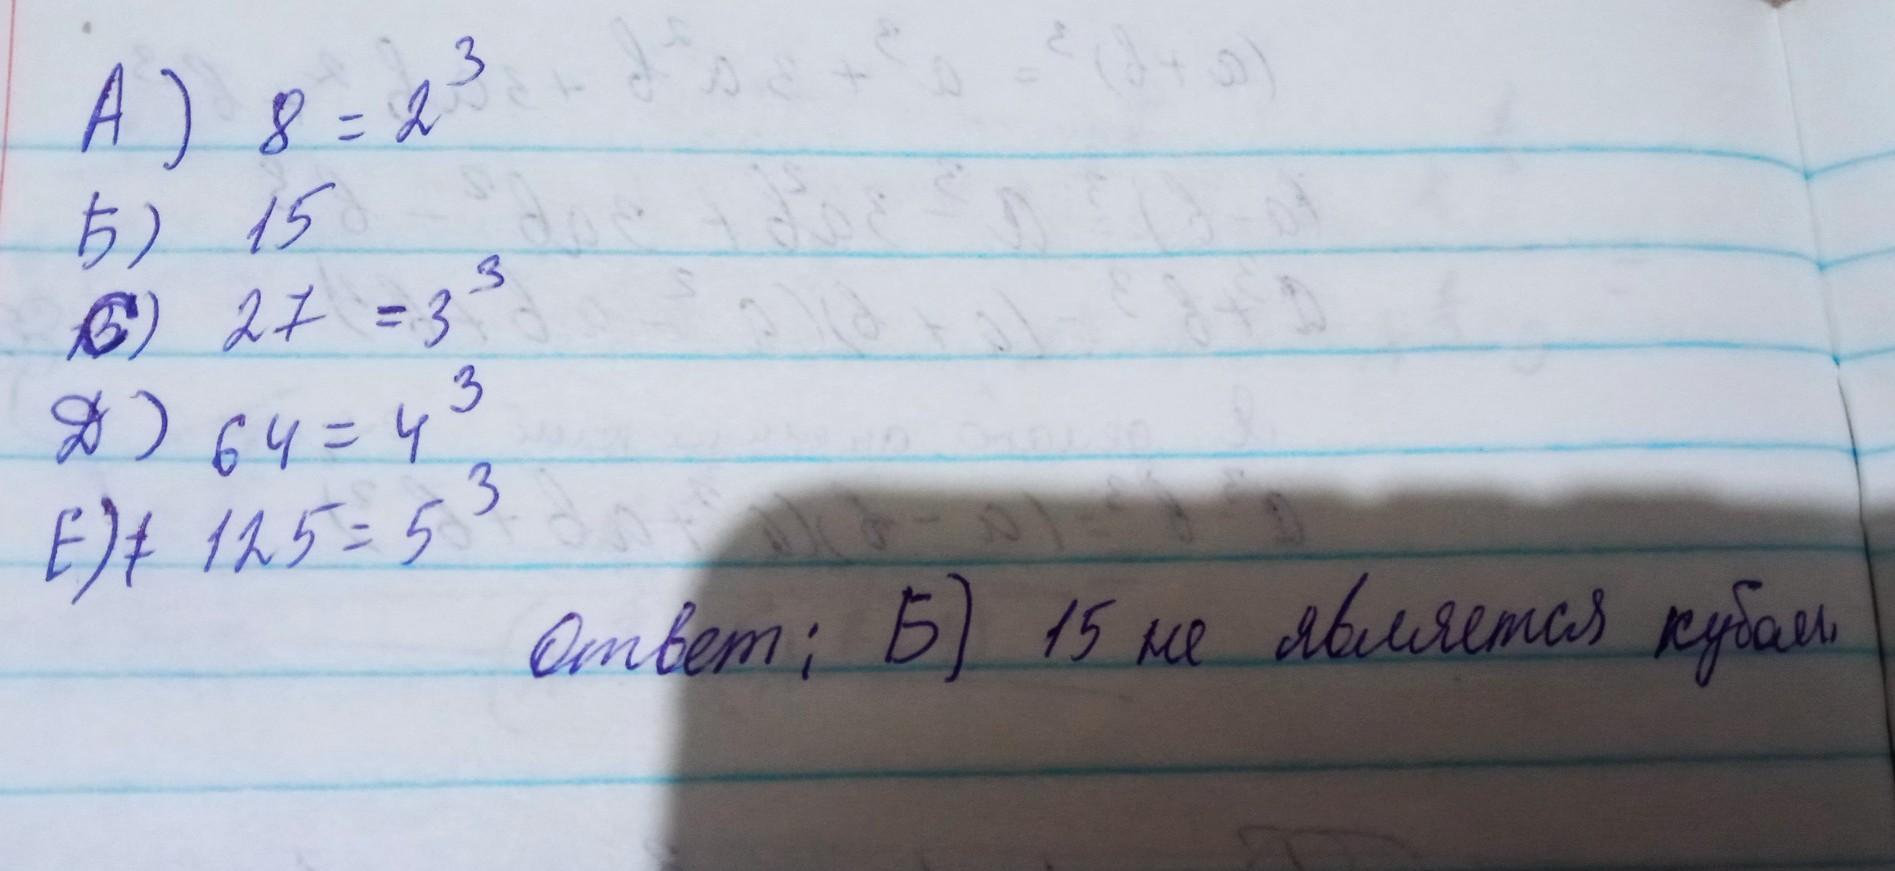 А) 8 = 2³
Б) 15
С) 27 = 3³
Д) 64 = 4³
Е) 125 = 5³
Ответ: Б) 15 не является кубом.